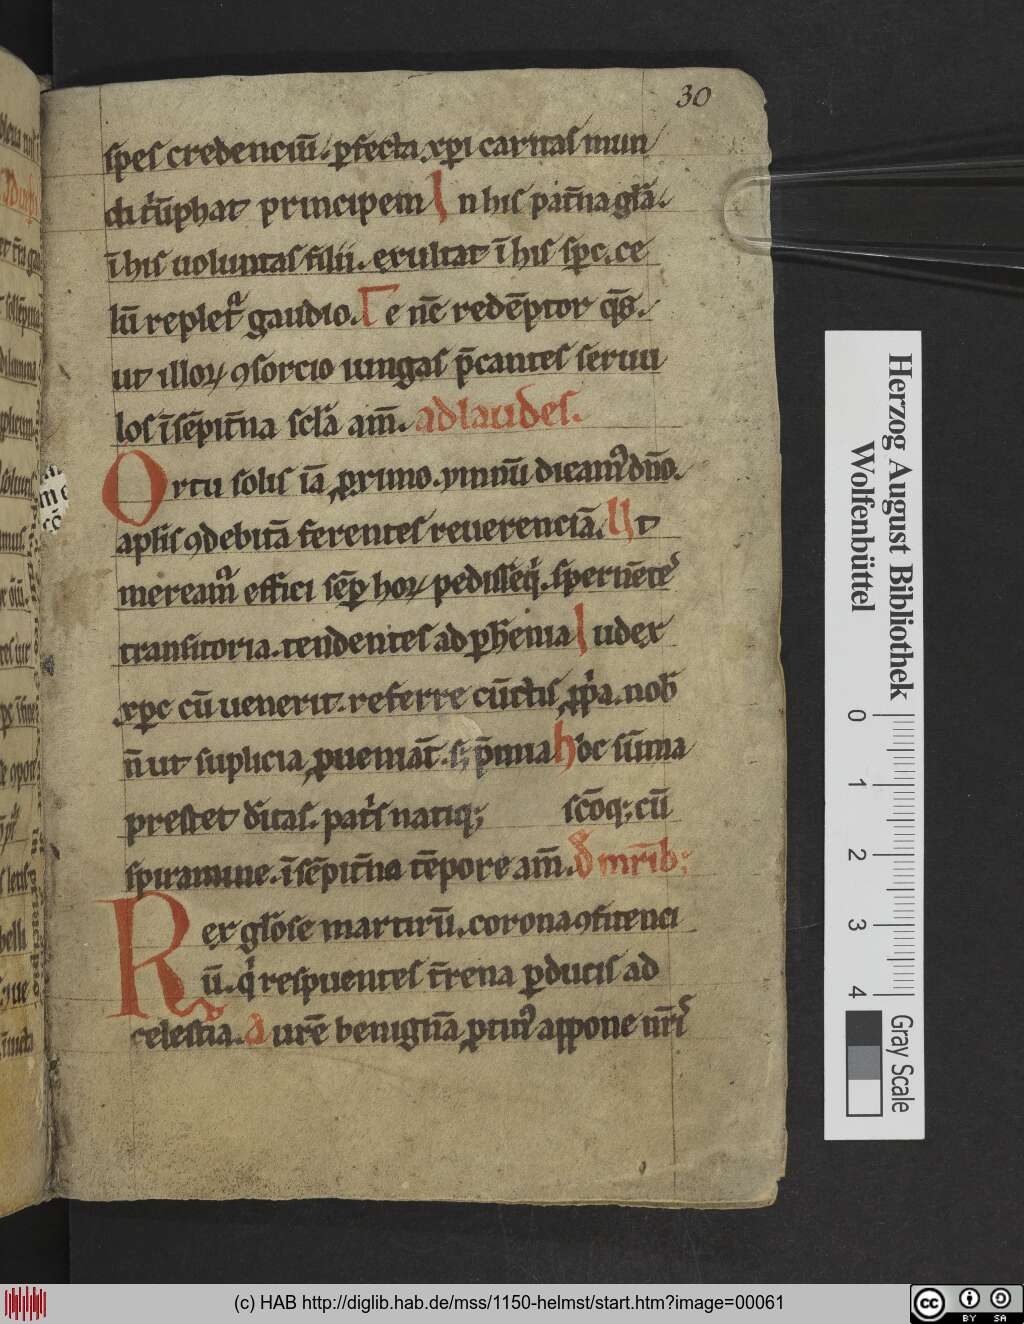 30
spes credenciū. ꝑfecta xp̄i caritas mun
di t͛ūphat principem In his pat̄na gl̄a.
ī his uoluntas filii. exultat ī his sp̄c. ce
lū replet᷑ gaudio. Te nc̄ redēptor q̄s.
ut illoꝝ ꝯsorcio iungas p̄cantes seruu
los ī sēpit̄na scl̄a am̄. ad laudes.
Ortu solis iā ꝓximo. ymnū dicam᷒ dn̄o.
apl̄is ꝯdebitā ferentes reuerenciā. Ut
meream᷑ effici sēꝑ hoꝝ pedisseq̇. spernēte᷒
transitoria. tendentes ad ꝑhēnia Iudex
xp̄c cū uenerit. referre cūctis ꝓpͥa. nob̄
n̄ ut suplicia ꝓueniāt. s; p̄mia hoc sūma
prestet ditas. patͥs natiq; scōq; cū
spiramine. ī sēpit̄na tēpore am̄. D mr̄ib;
Rex glōse martirū. corona ꝯfitenci
ū. qͥ respuentes t̄rena ꝑducis ad
celestia. Aurē benignā ꝓtin᷒ appone nr̄ıs
Herzog August Bibliothek
Wolfenbüttel
0 1 2 3 4
Gray Scale
(c) HAB http://diglib.hab.de/mss/1150-helmst/start.htm?image=00061
cc BY SA